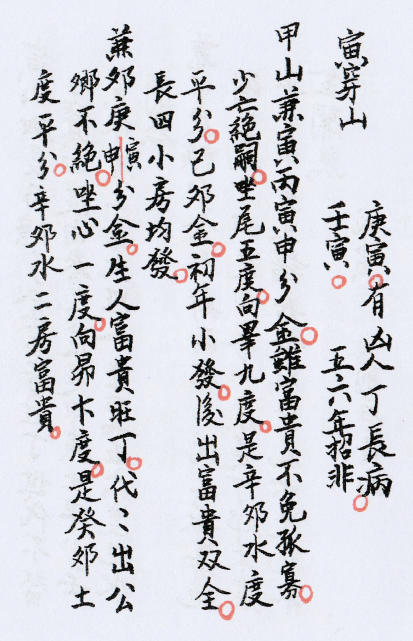 寅穿山
庚寅。有凶人丁長病。
壬寅。五六年招非
甲山兼寅丙寅申分金。雖富貴不免孤寡。
少亡絕嗣。坐尾五度向畢九度。是辛卯水度
平分。己卯金。初年小發。後出富貴双全。
長四小房均發。
兼卯庚寅申分金。生人富貴旺丁。代〻出公
鄉不絕。坐心一度。向昴十度。是癸卯土
度平分。辛卯水二房富貴。